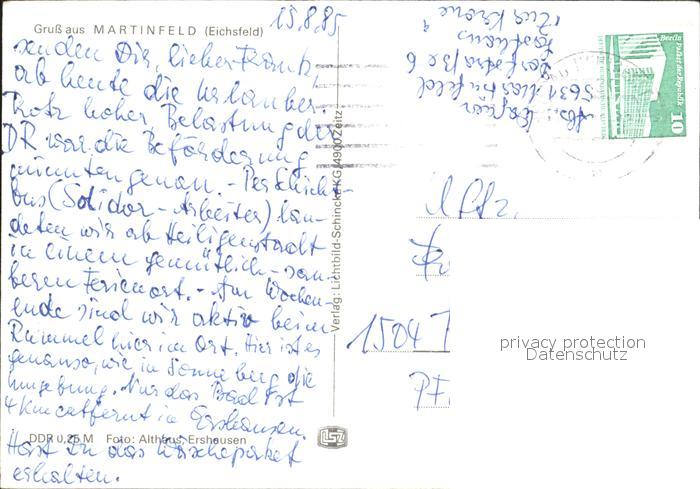 Gruß aus MARTINFELD (Eichsfeld)
15.8.85
senden Dir, lieber Frank,
ab heute die Urlauber.
Trotz hoher Belastung der
DR war die Beförderung
minutengenau. - Per Schicht-
bus (Solidor-Arbeiter) lan-
deten wir ab Heiligenstadt
in einem gemütlich-sau-
beren Ferienort. - Am Wochen-
ende sind wir aktiv beim
Rummel hier im Ort. Hier ist es
genauso, wie in Sonneberg die
Umgebung. Nur das Bad ist
4 km entfernt in Ershausen.
Hast Du das Wäschepaket
erhalten.
DDR 0,25 M Foto: Althaus, Ershausen
Verlag: Lichtbild-Schincke KG, 4900 Zeitz
Abs.:
5631 Martinfeld
6
Gasthaus
"Zur Krone"
Berlin
Palast der Republik
10
1504
PF
privacy protection
Datenschutz